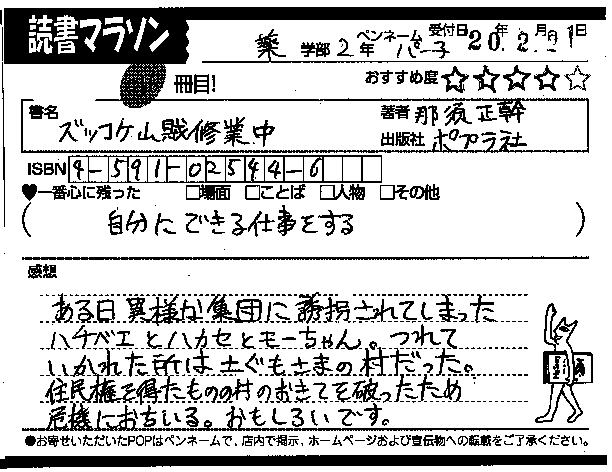 読書マラソン
薬 学部 2年 ペンネーム 子 受付日 20年 2月 1日
冊目!
おすすめ度 ☆☆☆☆☆
書名 ズッコケ山賊修業中
著者 那須正幹
出版社 ポプラ社
ISBN 4-591-02544-6
♥一番心に残った □場面 □ことば □人物 □その他
(自分にできる仕事をする)
感想
ある日異様な集団に誘拐されてしまった
ハチベエとハカセとモーちゃん。つれて
いかれた所は土ぐもさまの村だった。
住民権を得たものの村のおきてを破ったため
危機におちいる。おもしろいです。
●お寄せいただいたPOPはペンネームで、店内で掲示、ホームページおよび宣伝物への転載をご了承ください。